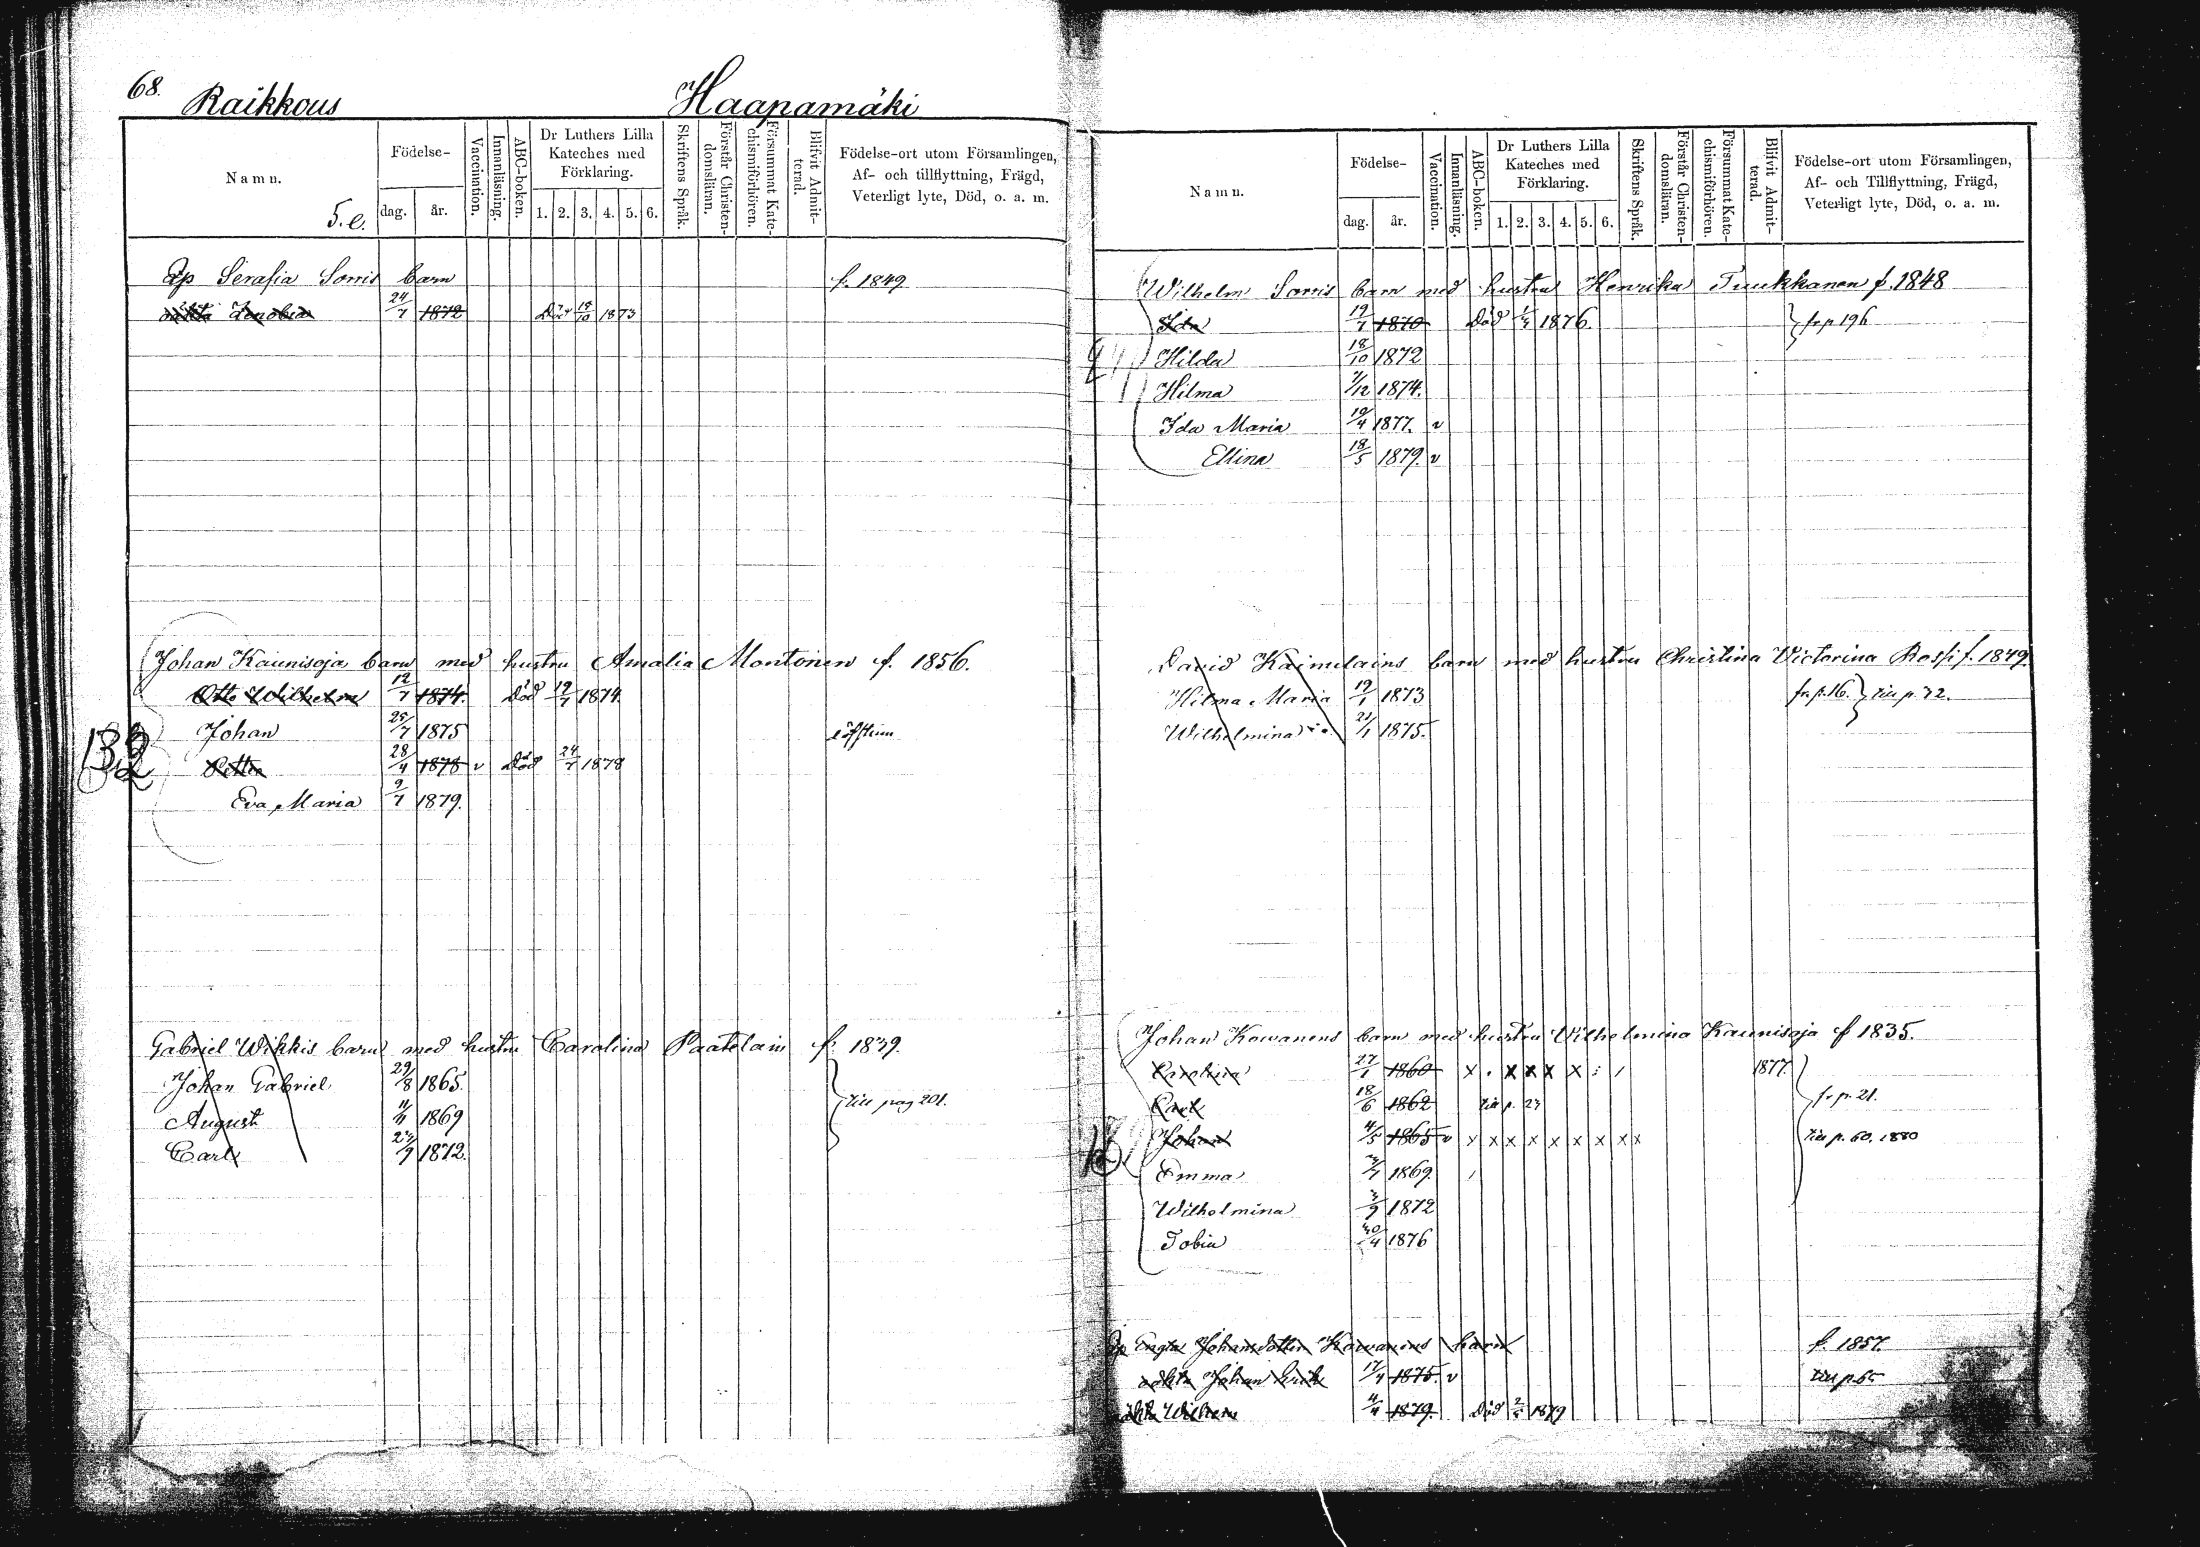 68.
Raikkous Haapamäki
Namn. Födelse- dag. år. Vaccination. Innanläsning. ABC-boken. Dr Luthers Lilla Kateches med Förklaring. 1. 2. 3. 4. 5. 6. Skriftens Språk. Förstår Christendomsläran. Försummat Katechismiförhören. Blifvit Admitterad. Födelse-ort utom Församlingen, Af- och tillflyttning, Frägd, Veterligt lyte, Död, o. a. m.
5. e.
Qp Serafia Sorris barn f. 1849
oäkta Zenobia 24/7 1872 Död 15/10 1873
Johan Kaunisoja barn med hustru Amalia Montonen f. 1856.
Otto Wilhelm 12/7 1874. Död 19/7 1874.
Johan 25/7 1875
Petter 28/4 1878 v Död 24/7 1878
132
Eva Maria 9/7 1879.
Gabriel Wikkis barn med hustru Carolina Paatelain f. 1839.
Johan Gabriel 29/8 1865.
till pag 201.
August 11/11 1869
Carl 27/9 1872.
Namn. Födelse- dag. år. Vaccination. Innanläsning. ABC-boken. Dr Luthers Lilla Kateches med Förklaring. 1. 2. 3. 4. 5. 6. Skriftens Språk. Förstår Christendomsläran. Försummat Katechismiförhören. Blifvit Admitterad. Födelse-ort utom Församlingen, Af- och Tillflyttning, Frägd, Veterligt lyte, Död, o. a. m.
Wilhelm Sorris barn med hustru Henrika Tuukkanen f. 1848
Ida 19/7 1870 Död 1/4 1876. fr p 196
Hilda 18/10 1872
Hilma 7/12 1874.
Ida Maria 19/4 1877. v
Ellina 18/5 1879. v
David Kainulains barn med hustru Christina Victorina Rossi f. 1849.
Hilma Maria 19/1 1873 fr. p. 16. till p. 72.
Wilhelmina 21/1 1875.
Johan Kowanens barn med hustru Wilhelmina Kaunisoja f 1835.
Carolina 27/1 1860 x . x x x x 1877.
Carl 18/6 1862 till p. 27 fr. p. 21.
Johan 4/5 1865 v x x x x x x x x x till p. 60. 1880
Emma 1869.
Wilhelmina 3/9 1872
Tobia 30/4 1876
Qp Engla Johansdotter Kowanens barn f. 1857.
oäkta Johan Erik 17/4 1875. v till p. 65
oäkta Wilhem 4/4 1879. Död 1879